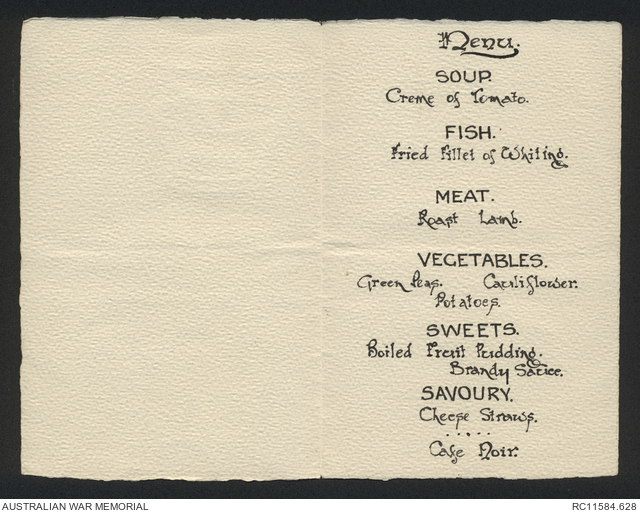 Menu.
SOUP.
Creme of Tomato.
FISH.
Fried Fillet of Whiting.
MEAT.
Roast Lamb.
VEGETABLES.
Green Peas. Cauliflower.
Potatoes.
SWEETS.
Boiled Fruit Pudding.
Brandy Sauce.
SAVOURY.
Cheese Straws.
.....
Cafe Noir.
AUSTRALIAN WAR MEMORIAL RC11584.628